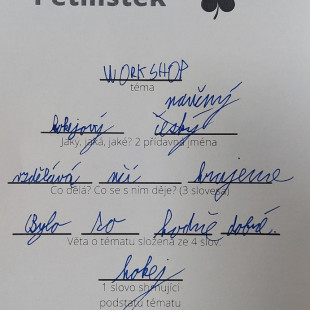 Pětilístek
WORKSHOP
téma
naučný
hokejový český
Jaký, jaká, jaké? 2 přídavná jména
vzdělává učí hrajeme
Co dělá? Co se s ním děje? (3 slovesa)
Bylo to hodně dobré..
Věta o tématu složená ze 4 slov.
hokej
1 slovo shrnující
podstatu tématu